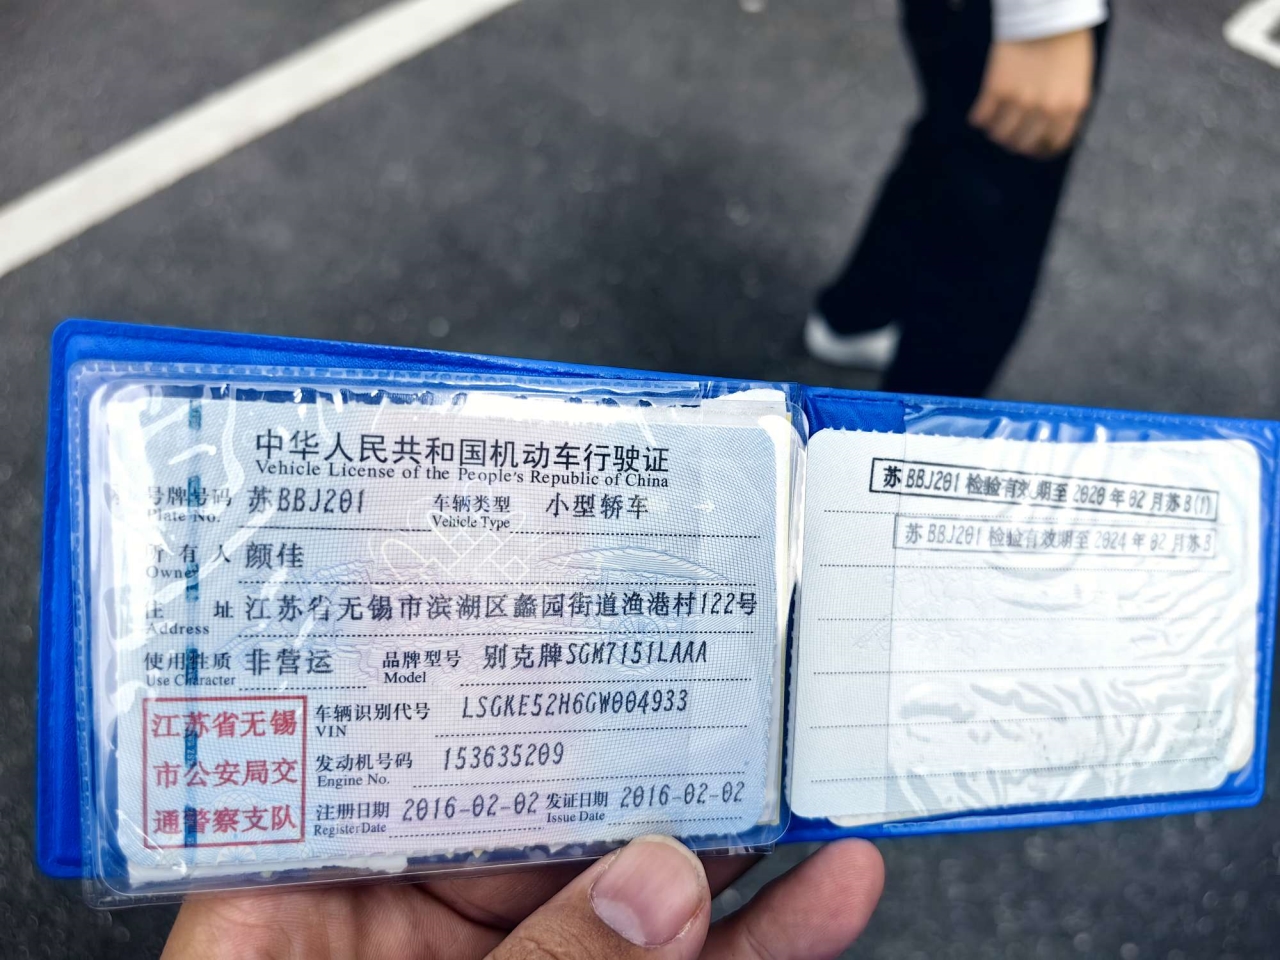 中华人民共和国机动车行驶证
Vehicle License of the People's Republic of China
号牌号码 苏BBJ201 车辆类型 小型轿车
Plate No. Vehicle Type
所有人 颜佳
Owner
住址 江苏省无锡市滨湖区蠡园街道渔港村122号
Address
使用性质 非营运 品牌型号 别克牌SGM7151LAAA
Use Character Model
江苏省无锡
市公安局交
通警察支队
车辆识别代号 LSGKE52H6GW004933
VIN
发动机号码 153635209
Engine No.
注册日期 2016-02-02 发证日期 2016-02-02
Register Date Issue Date
苏BBJ201 检验有效期至 2020 年 02 月苏B(1)
苏BBJ201 检验有效期至 2024 年 02 月苏B